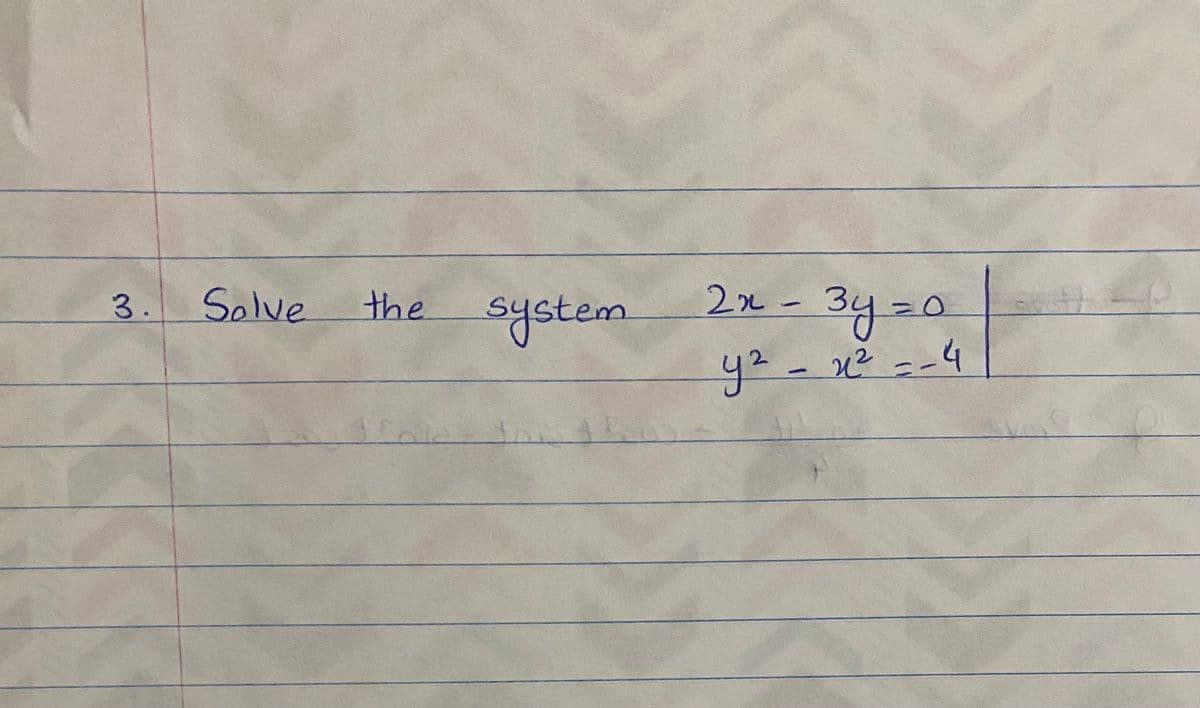 3. Solve the system 2x - 3y = 0
y² - x² = -4